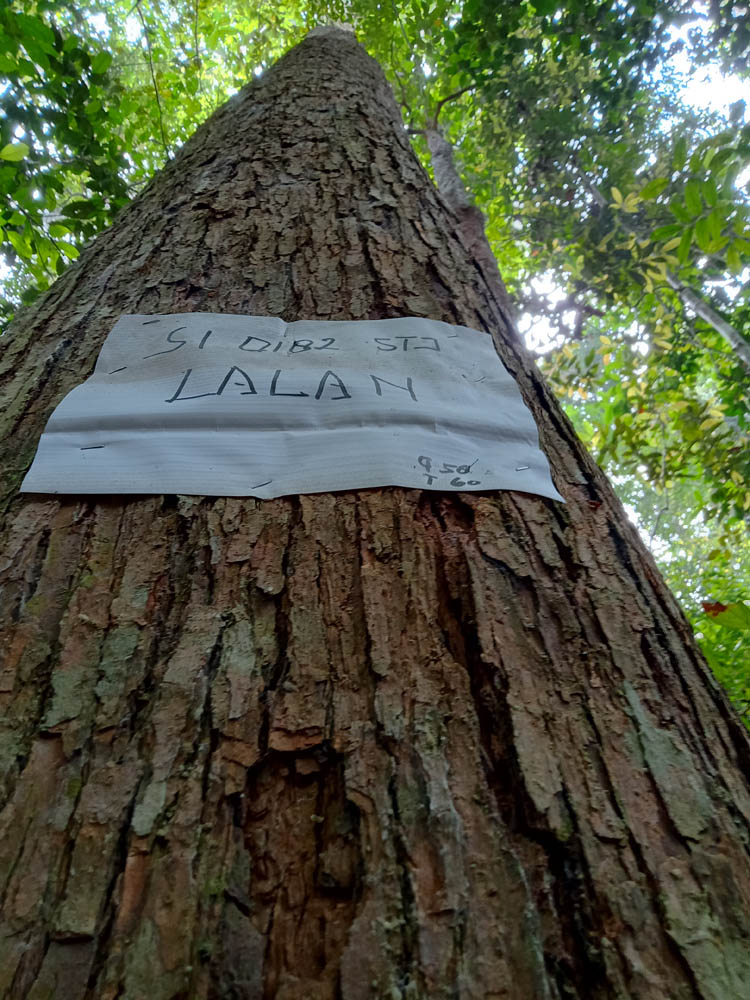 SI 0182 STJ
LALAN
Q 50
T 60